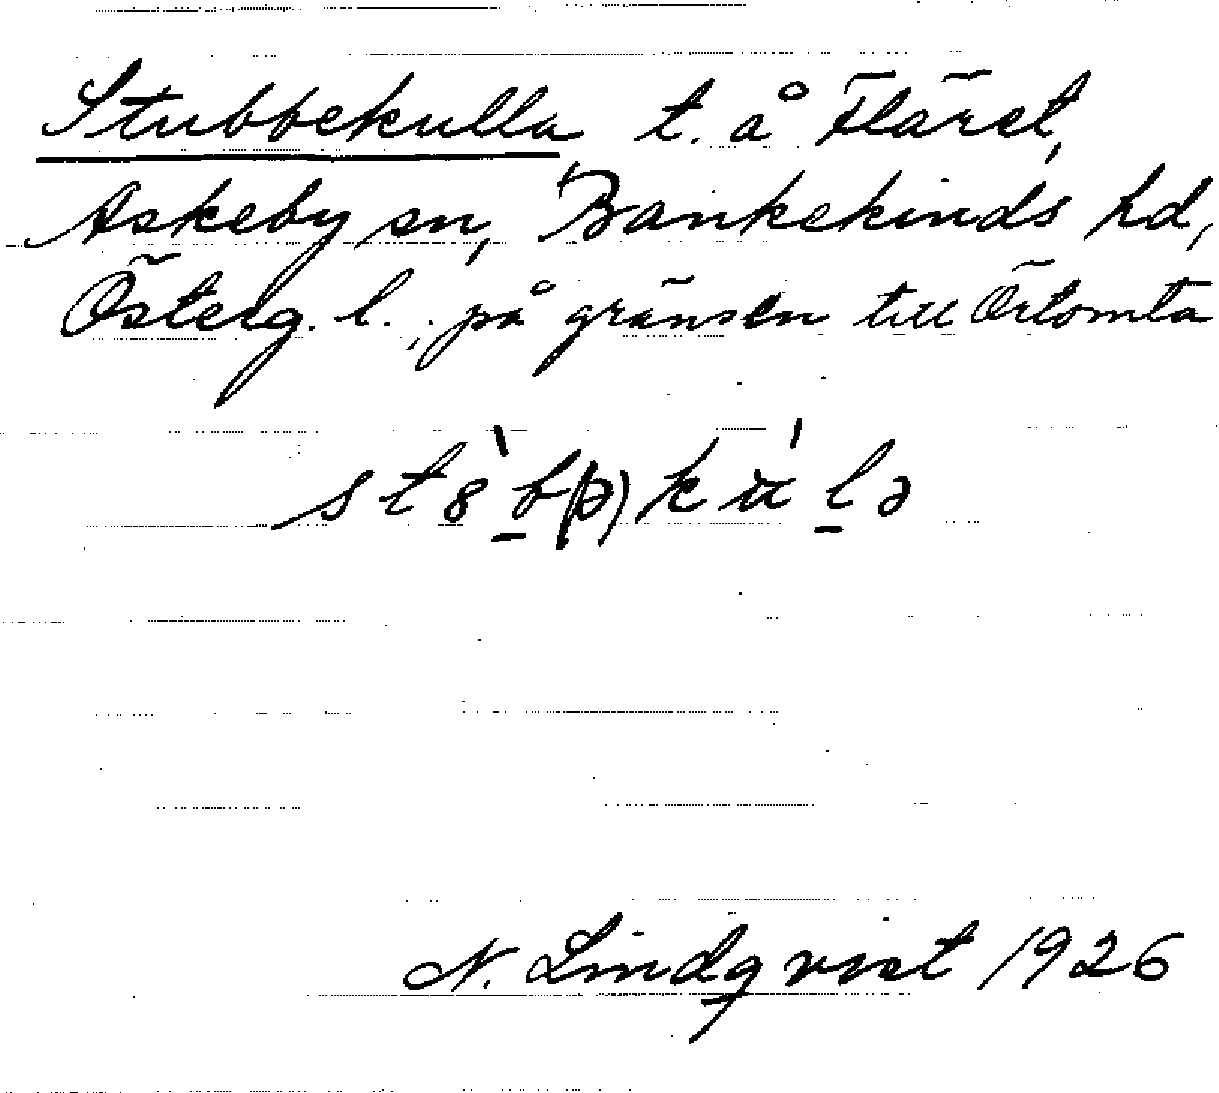 Stubbekulla t. å Fläret,
Askeby sn, Bankekinds hd,
Österg. l., på gränsen till Örtomta
st8̀b̲(ə)kú̈l̲ə
N. Lindqvist 1926